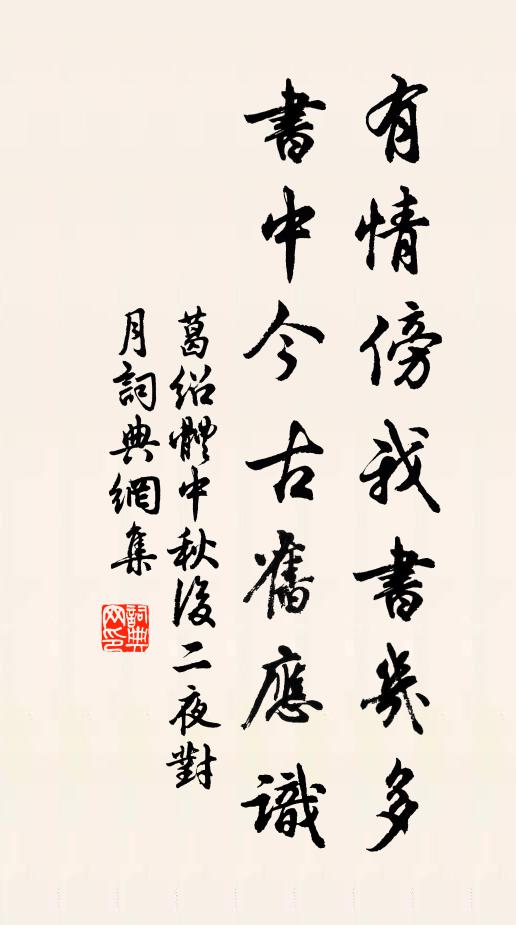 有情傍我書幾多
書中今古舊應識
葛紹體中秋後二夜對
月詞典網集
詞典
网印